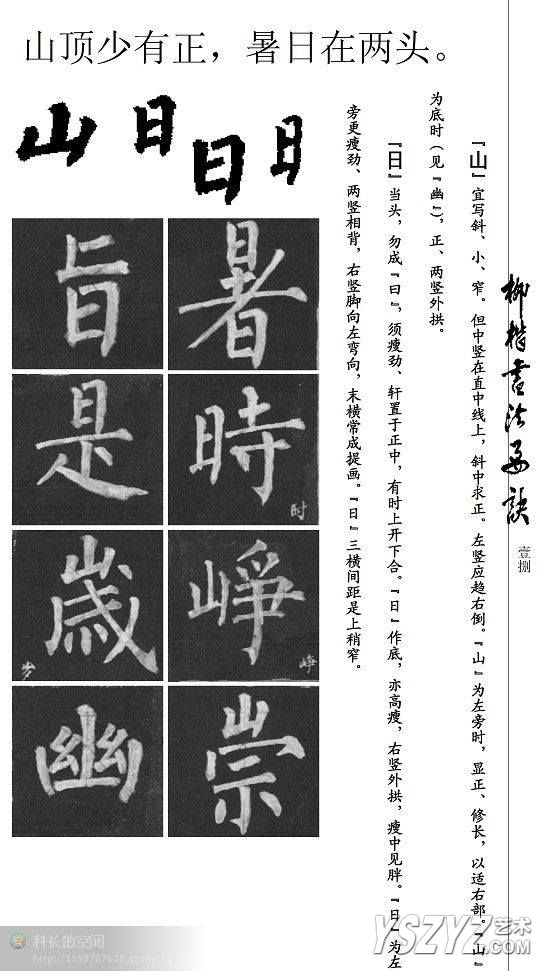 山顶少有正，暑日在两头。
山 日 日 日
旨 暑
是 時 时
歲 岁 崢 峥
幽 崇
柳楷书法要诀
壹捌
『山』宜写斜、小、窄。但中竖在直中线上，斜中求正。左竖应趋右倒。『山』为左旁时，显正、修长，以适右部。『山』
为底时（见『幽』），正、两竖外拱。
『日』当头，勿成『曰』，须瘦劲、轩置于正中，有时上开下合。『日』作底，亦高瘦，右竖外拱，瘦中见胖。『日』为左
旁更瘦劲、两竖相背，右竖脚向左弯向，末横常成提画。『日』三横间距是上稍窄。
科长的空间
http://1193767618.qzone.qq.com
YSZYZ艺术